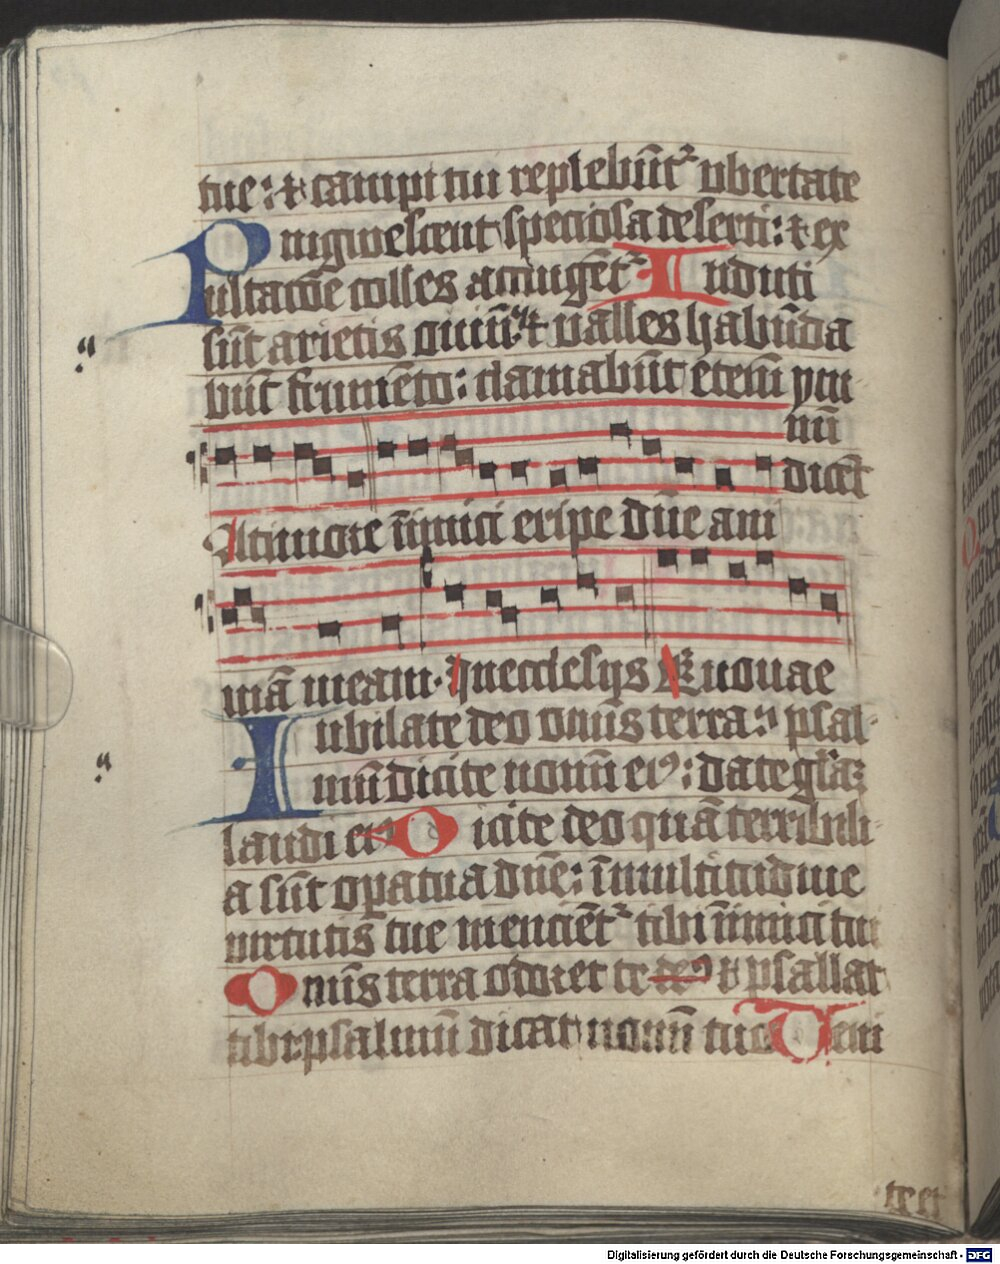 tue: ⁊ campi tui replebūt᷑ vbertate
Pinguescent speciosa deserti: ⁊ ex
ultacōe colles accinget᷑ Induti
sūt arietis ouiū: ⁊ ualles habūda
būt frumēto: clamabūt etem̄ ymnū
dicēt
A timore īimici eripe dn̄e ani
mā meam. In ecclesijs Euouae
Iubilate deo om̄is terra: psal
mū dicite nomī eiꝰ: date glā
laudi eiꝰ Dicite deo quā terribili
a sūt oꝑa tua dn̄e: ī multitudine
virtutis tue mencient᷑ tibi īimici tui
Om̄is terra adoret te deꝰ ⁊ psallat
tibi: psalmū dicat nomī tuo Veni
te et
Digitalisierung gefördert durch die Deutsche Forschungsgemeinschaft - DFG